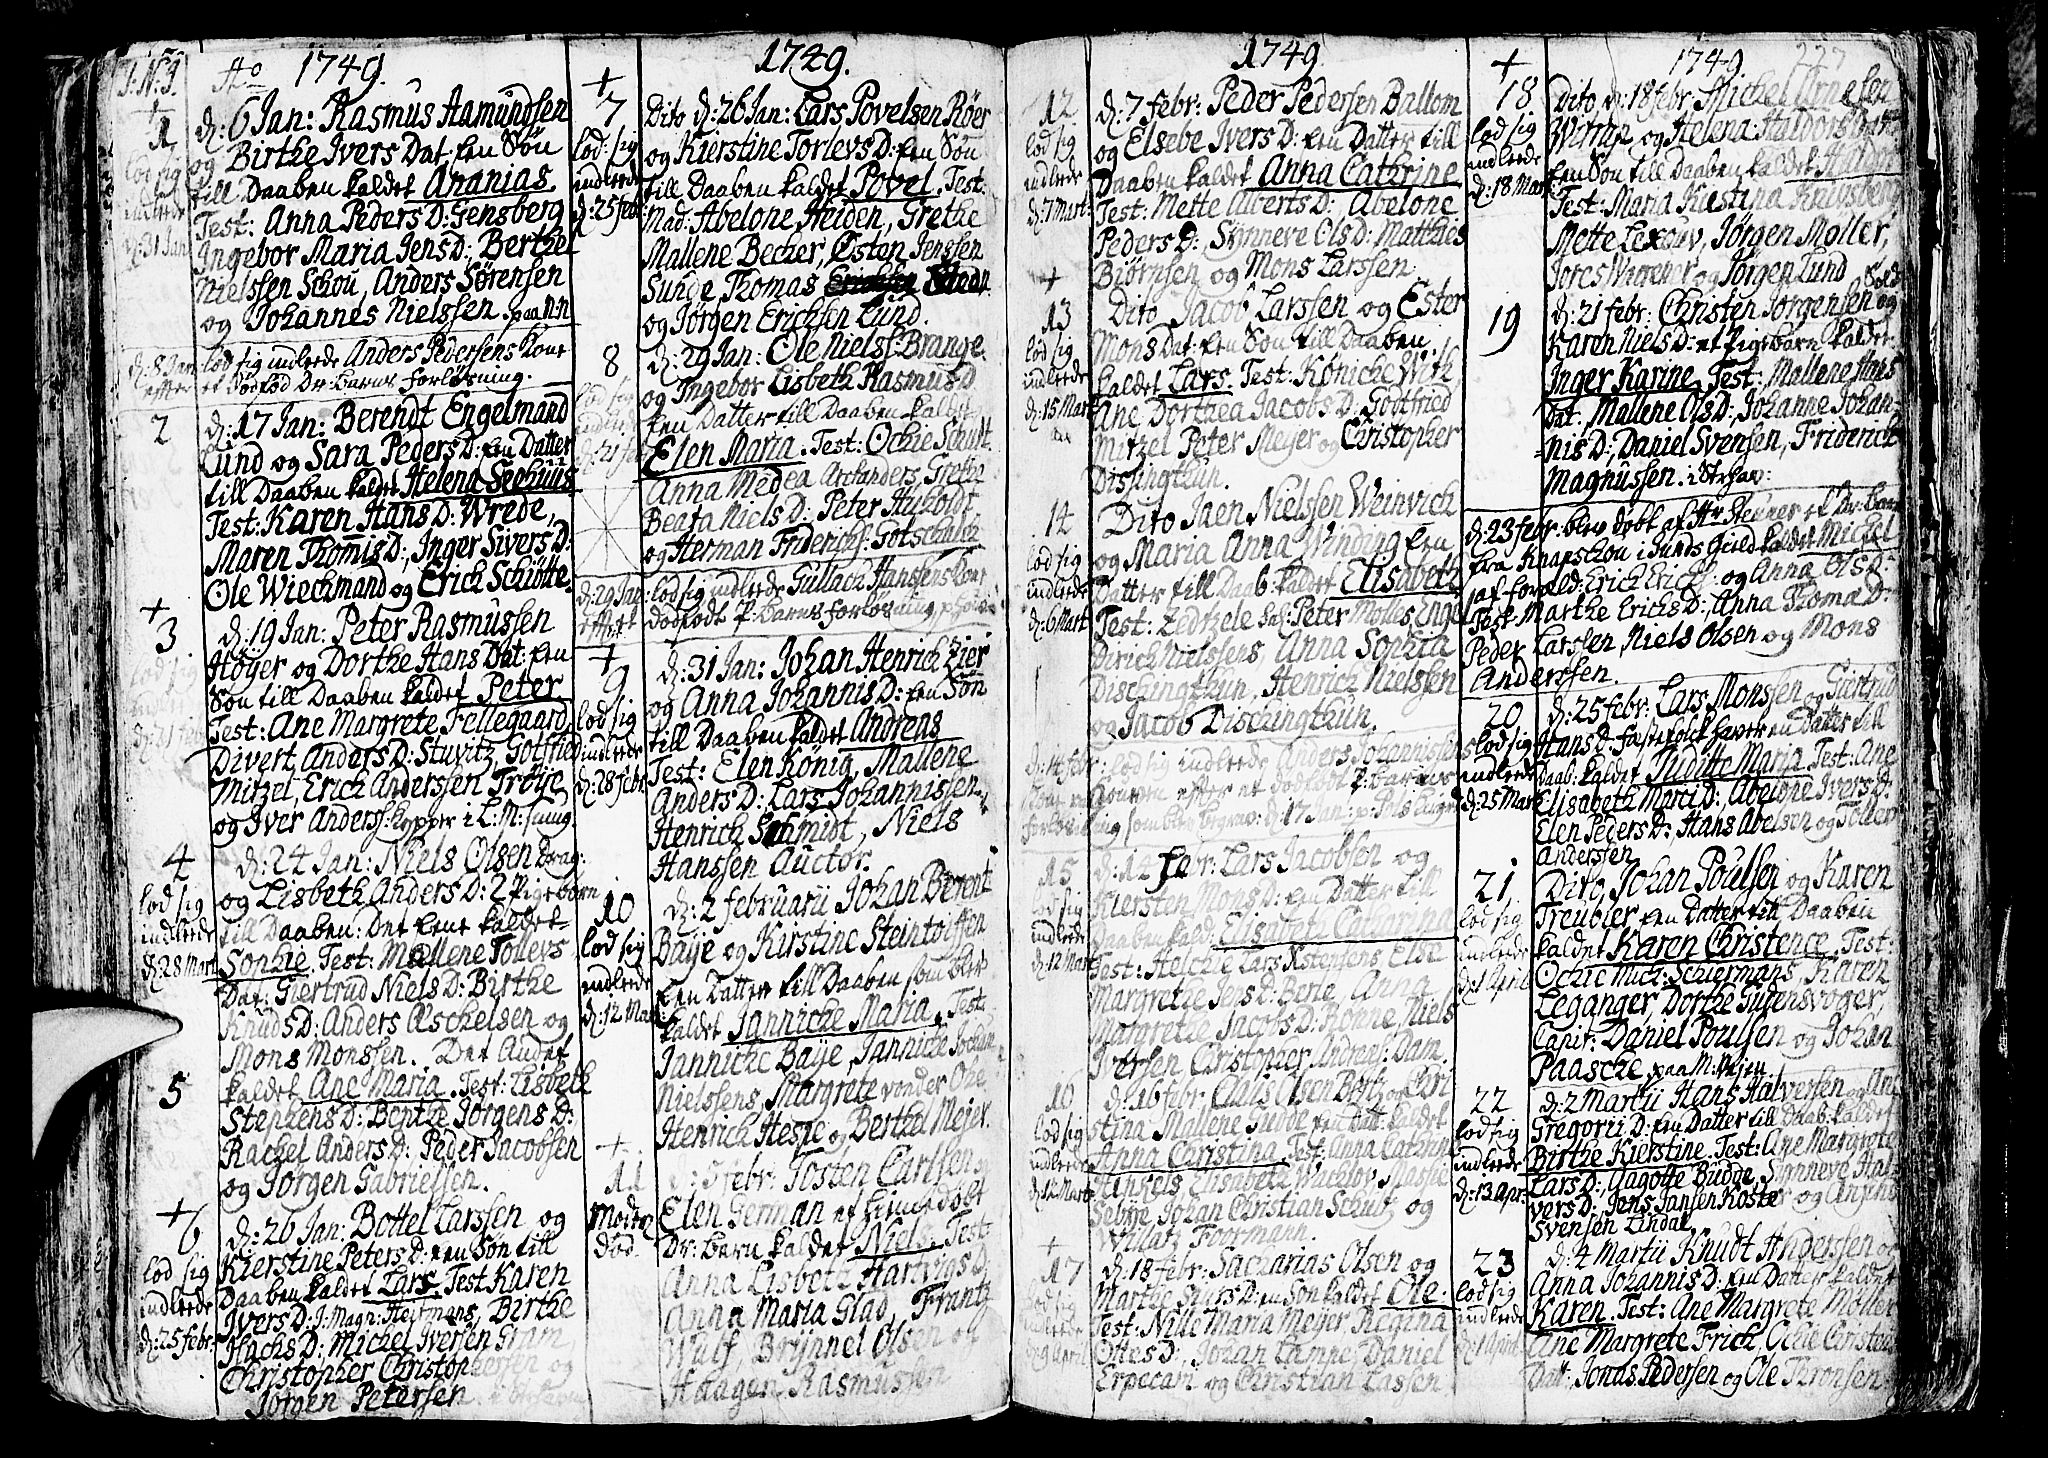 1749.
1
lod sig
indlede
d: 31 Jan
d: 6 Jan: Rasmus Aamundsen
og Birthe Ivers Dat: een Søn
till Daaben kaldet Ananias.
Test: Anna Peders D: Gensberg
Ingebor Maria Jens D: Berthel
Nielssen Schou, Anders Sørensen
og Johannes Nielssen. paa N:n
d: 8 Jan lod sig indlede Anders Pedersens Kone
efter et Dr: barns forløsning.
2
d: 17 Jan: Berendt Engelmand
Lund og Sara Peders D: een Datter
till Daaben kaldet Helena Seehuus
Test: Karen Hans D: Wrede,
Maren Thomis D:, Inger Sivers D:
Ole Wieckmand og Erich Schiøtte.
+
3
lod sig
d: 19 Jan: Peter Rasmussen
Høyer og Dorthe Hans Dat: een
Søn till Daaben kaldet Peter
Test: Ane Margrete Fellegaard
Divert Anders D: Stuvitz, Gotfried
Mitzel, Erich Anderssen Trøye
og Iver Anderss:
4
lod sig
indlede
d: 28 Mart
d: 24 Jan: Niels Olsen Drag:
og Lisbeth Anders D: 2 Pigebørn
till Daaben: Det eene kaldet
Sophie. Test: Mallene Tollevs
Dat: Giertrud Niels D: Birthe
Knuds D: Anders Æschelsen og
Mons Monssen. Det Andet
5
kaldet Ane Maria. Test: Lisbeth
Stephens D: Benthe Jørgens D:
Rachel Anders D: Peder Jacobsen
og Jørgen Gabrielsen.
+
6
lod sig
indlede
d: 25 febr:
d: 26 Jan: Bottel Larssen og
Kierstine Peters D: een Søn till
Daaben kaldet Lars. Test Karen
Ivers D: J: Magn: Heitmans, Birthe
Hachs D: Michel Iversen Gram
Christopher Christophersen og
Jørgen Petersen
1749.
+
7
lod: sig
indlede
d: 25 febr
Dito d: 26 Jan: Lars Povelsen Røer
og Kierstine Torlevs D: een Søn
till Daaben kaldet Povel. Test:
Mad: Abelone Heiden, Grethe
Mallene Becker, Østen Jenssen
Sunde, Thomas
og Jørgen Erichsen Lund.
8
lod sig
d: 29 Jan: Ole Nielss: Branje
og Ingebor Lisbeth Rasmus D
een Datter till Daaben kaldet
Elen Maria. Test: Ochie Schult
Anna Medea Archanders, Grethe
Beata Niels D: Peter Huboldt
og Herman Friderichs: Gotschalck
d: 29 Jan: lod sig indlede Gullach Hanssens Kone
efter et dødfødt P: barns forløsning
+
9
lod sig
indlede
d: 28 febr
d: 31 Jan: Johan Henrich Zier
og Anna Johannis D: een Søn
till Daaben kaldet Andreas
Test: Elen König, Mallene
Anders D: Lars Johannissen
Henrich Schmidt, Niels
Hanssen Auctor.
10
lod sig
indlede
d: 12 Mart
d: 2 februarii Johan Berent
Baye og Kirstine Steintoiffen
een Datter till Daaben som blev
kaldet Jannicke Maria. Test:
Jannicke Baye, Jannicke Jochum
Nielssens, Margrete vonder Ohe
Henrich Hespe og Berthel Mejer.
+
11
Modre
død.
d: 5 febr: Tosten Carlsen og
Elen German et hiemedøbt
Dr: barn kaldet Niels. Test:
Anna Lisbeth Hartvigs D:
Anna Maria Glad, Frantz
Wulf Brynnel Olsen og
Haagen Rasmussen
1749.
12
lod sig
indlede
d: 7 Mart:
d: 7 febr: Peder Pedersen Ballom
og Elsebe Ivers D: een Datter till
Daaben kaldet Anna Cathrine
Test: Mette Alberts D: Abelone
Peders D: Synneve Ols D: Matthies
Biørnsen og Mons Larssen.
+
13
lod sig
indlede
d: 15 Mart
Dito Jacob Larssen og Ester
Mons Dat: een Søn till Daaben
kaldet Lars. Test: Könicke Wirk
Ane Dorthea Jacobs D: Gottfried
Mitzel Peter Meyer og Christopher
Dissingthun.
14
lod sig
indlede
d: 6 Mart
Dito Jaen Nielssen Weinvich
og Maria Anna Winding een
Datter till Daab: kaldet Elisabeth
Test: Zedtzele Sal: Peter Mølles, Inge
Dirich Nielssens, Anna Sophia
Dischingthun. Henrich Nielssen
og Jacob Dischingthun.
d: 14 febr: lod sig indlede Anders Johannissens
Kone efter et dødfødt P: barns
forløsning som blev begrav: d: 17 Jan:
15
lod sig
indlede
d: 12 Mart
d: 14 febr: Lars Jacobsen og
Kiersten Mons D: en Datter till
Daaben kald: Elisabeth Catharina
Test: Helchie Lars Xstensens Else
Margrethe Jens D: Berie, Anna
Margrete Jacobs D: Rønne, Niels
Iversen Christopher Andreas: Dam.
lod sig
indlede
d: 12 Mart
d: 16 febr: Claus Olsen Bertz og Chri
stina Mallene Hedde een Dat: kaldet
Anna Christina. Test: Anna Cathrina
Finkels Elisabeth Wicelov, Maspie
Sebye, Johan Christian Schub og
Willatz Foormann.
+
17
lod sig
indlede
d: 9 April
d: 18 febr: Sacharias Olsen og
Marthe Siurs D: en Søn kaldet Ole.
Test: Nille Maria Meyer Regina
Ottes D:, Johan Lampe, Daniel
Erpecam og Christian Lassen
1749. 227
+
18
lod sig
indlede
d: 18 Mart
Dito d: 18 febr: Michel Arnesen
og Helena Haldors Datt
een Søn till Daaben kaldet Haldor
Test: Maria Kiestina Krüysberg
Mette Lexouv, Jørgen Møller,
og Jørgen Lund Sold
19
d: 21 febr: Christen Jørgensen og
Karen Niels D: et Pigebarn kaldet
Inger Karine. Test: Mallene Hans
Dat: Mallene Ols D:, Johanne Johan-
nis D:, Daniel Svensen, Friderich
Magnussen.
d: 23 febr: blev døbt af Hr: et Dr: barn
fra Knapschou i Sunds Gield kaldet Michel
af foræld: Erich Erichs: og Anna Ols D:
Test: Marthe Erichs D:, Anna Thomæ D:
Peder Larssen, Niels Olsen og Mons
Anderssen.
20
lod sig
indlede
d: 25 Mart
d: 25 febr: Lars Monssen og Giertrud
Hans D: fæstefolck haver en Datter till
Daab: kaldet Judithe Maria Test: Ane
Elisabeth Marci D: Abelone Ivers D:
Elen Peders D:, Hans Abelsen og Toller
Anderssen
21
lod sig
indlede
d: 1 April
Dito Johan Poulsen og Karen
Treubler een Datter till Daaben
kaldet Karen Christence. Test:
Ochie Mich: Schiermans, Karen
Leganger, Dorthe
Capit: Daniel Poulsen og Johan
Paasche, paa
22
lod sig
indlede
d: 13 Apr:
d: 2 Martii Hans Halversen og Ane
Gregorii D: een Datter till Daab: kaldet
Birthe Kierstine. Test: Ane Margrete
Lars D: Aagotte Budde, Synneve Hal-
vers D: Jens Jansen Koster og
Svensen Lindal.
23
lod sig
indlede
d: 1 April
d: 4 Martii Knudt Anderssen og
Anna Johannis D: een Datter kaldet
Karen. Test: Ane Margrete Møller
Ane Margrete Frich, Ochie Christens
Datt:, Jonas Pedersen og Ole Thronsen